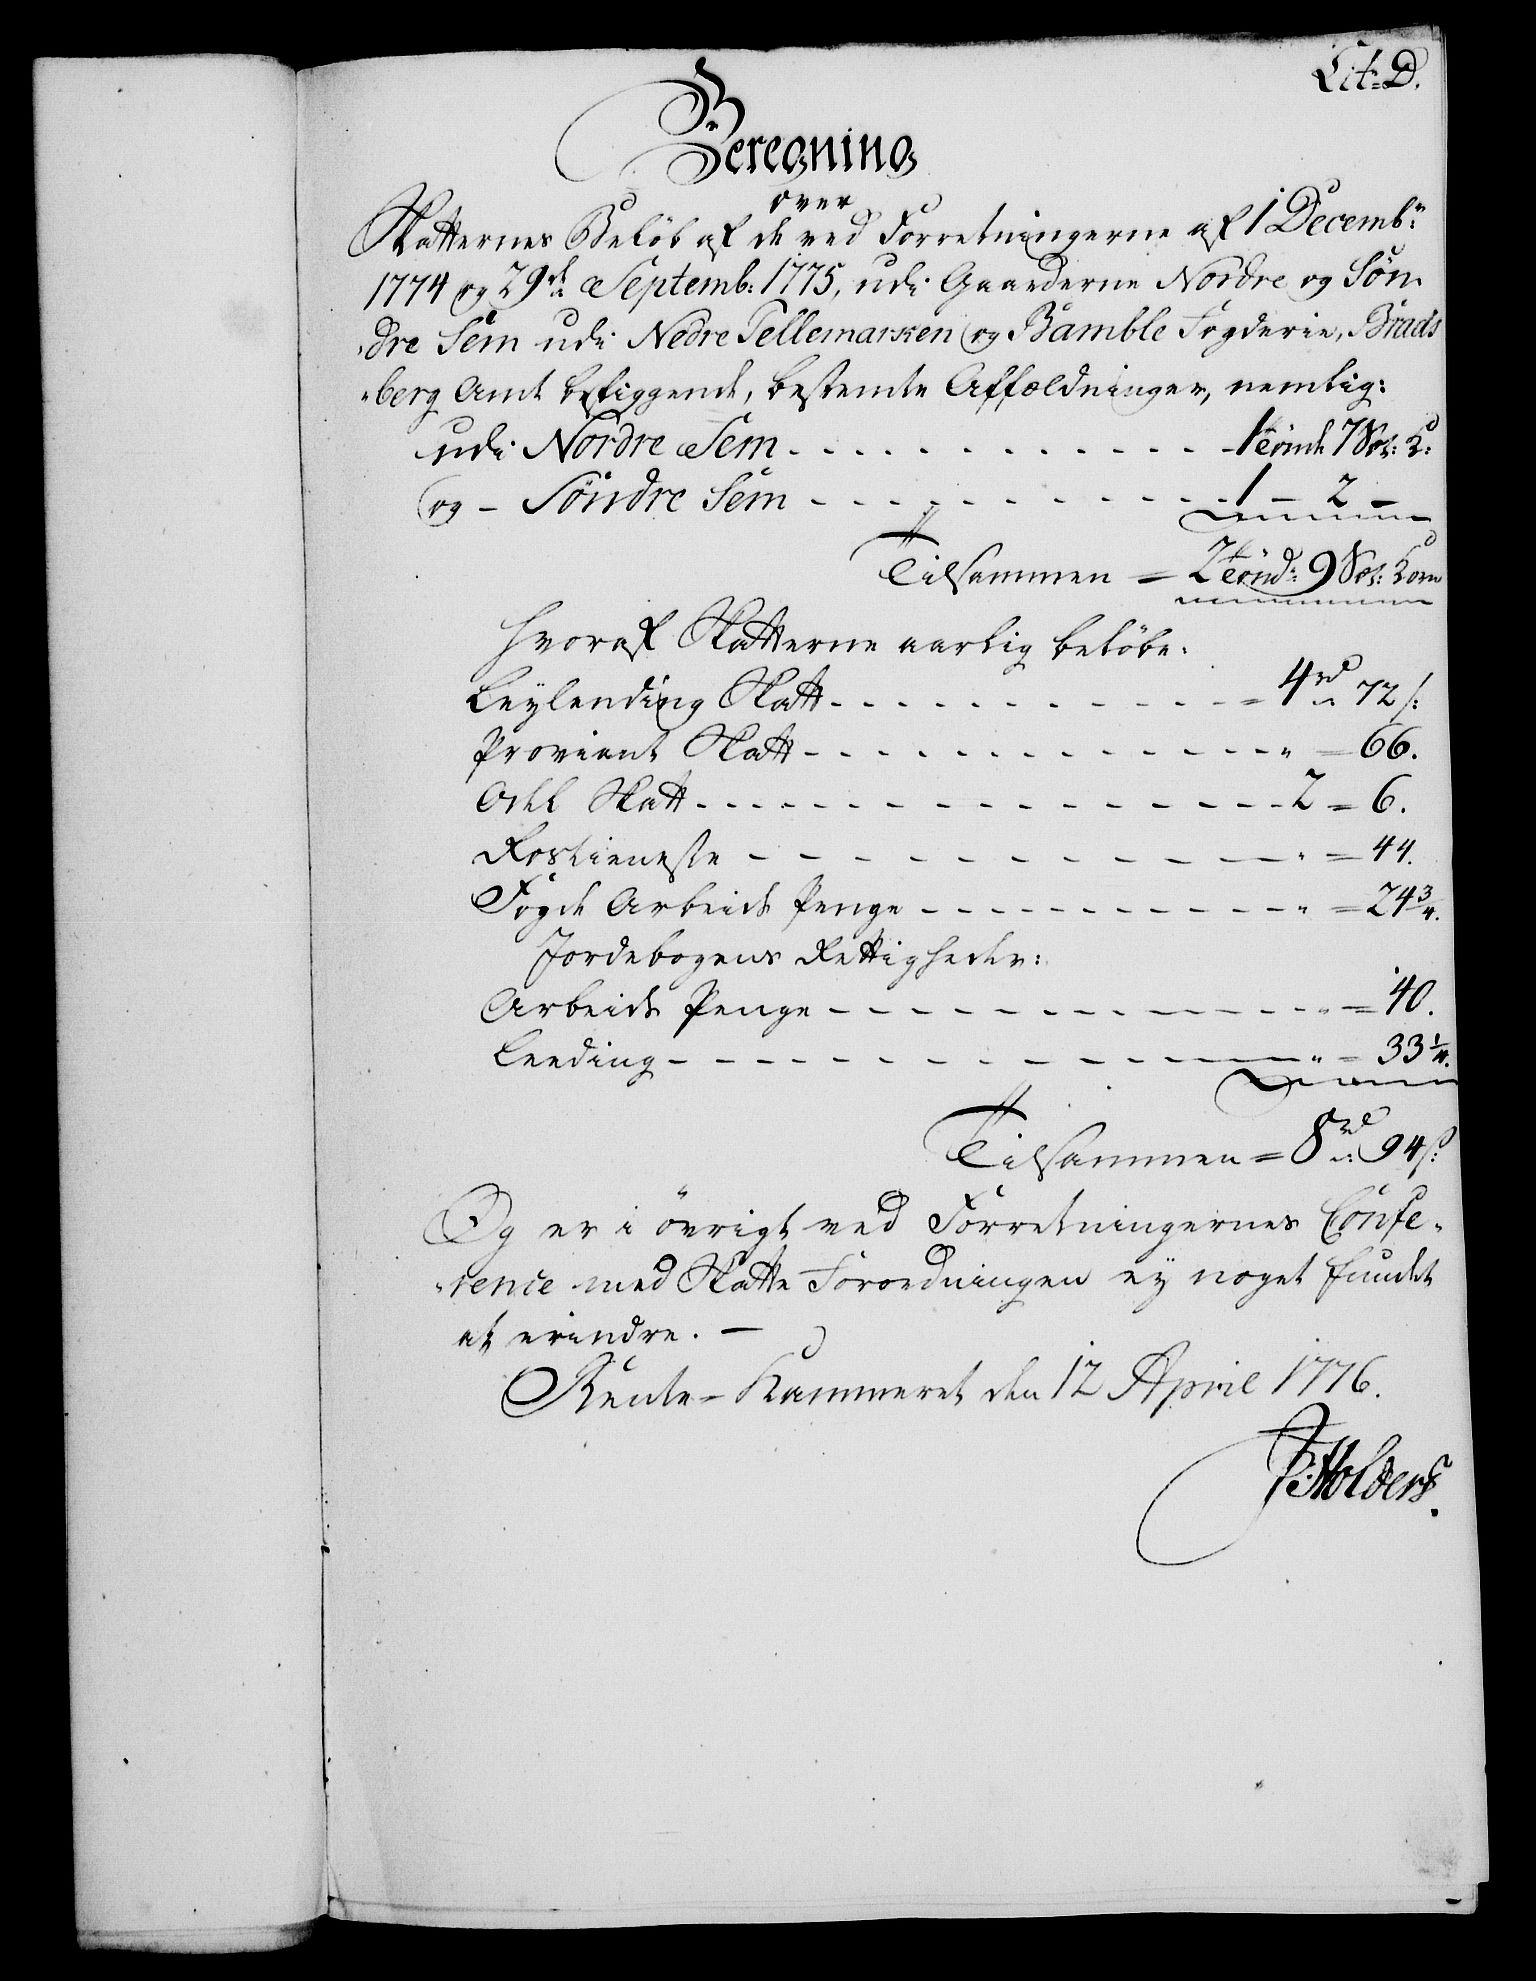 Lit: D.
Beregning
over
Skatternes Beløb af de ved Forretningerne af 1 Decembr:
1774 og 29de Septemb: 1775, udi Gaarderne Nordre og Søn-
-dre Sem udi Nedre Tellemarken og Bamble Fogderie, Brads
-berg Amt befiggende, bestemte Affældninger, nemlig:
udi Nordre Sem - - - - - - - - - - - 1 tønde 7 Sæt: K:
og - Søndre Sem - - - - - - - - - - - 1 - 2 -
Tilsammen = 2 tønd: 9 Sæt: Korn
hvoraf Skatterne aarlig beløbe.
Leylending Skatt - - - - - - - - - - - = 4 rd 72 s:
Proviant Skatt - - - - - - - - - - - - - " = 66.
Odel Skatt - - - - - - - - - - - - - - - 2 = 6.
Rostieneste - - - - - - - - - - - - " = 44.
Fogde Arbeids Penge - - - - - - - - - - - " = 24 3/4.
Jordebogens Rettigheder:
Arbeids Penge - - - - - - - - - - - - " = 40.
Leeding - - - - - - - - - - - - - " = 33 1/4.
Tilsammen = 8 rd: 94 s:
Og er i øvrigt ved Forretningernes Confe-
-rence med Skatte Forordningen ey noget fundet
at erindre. -
Rente-Kammeret den 12 April 1776.